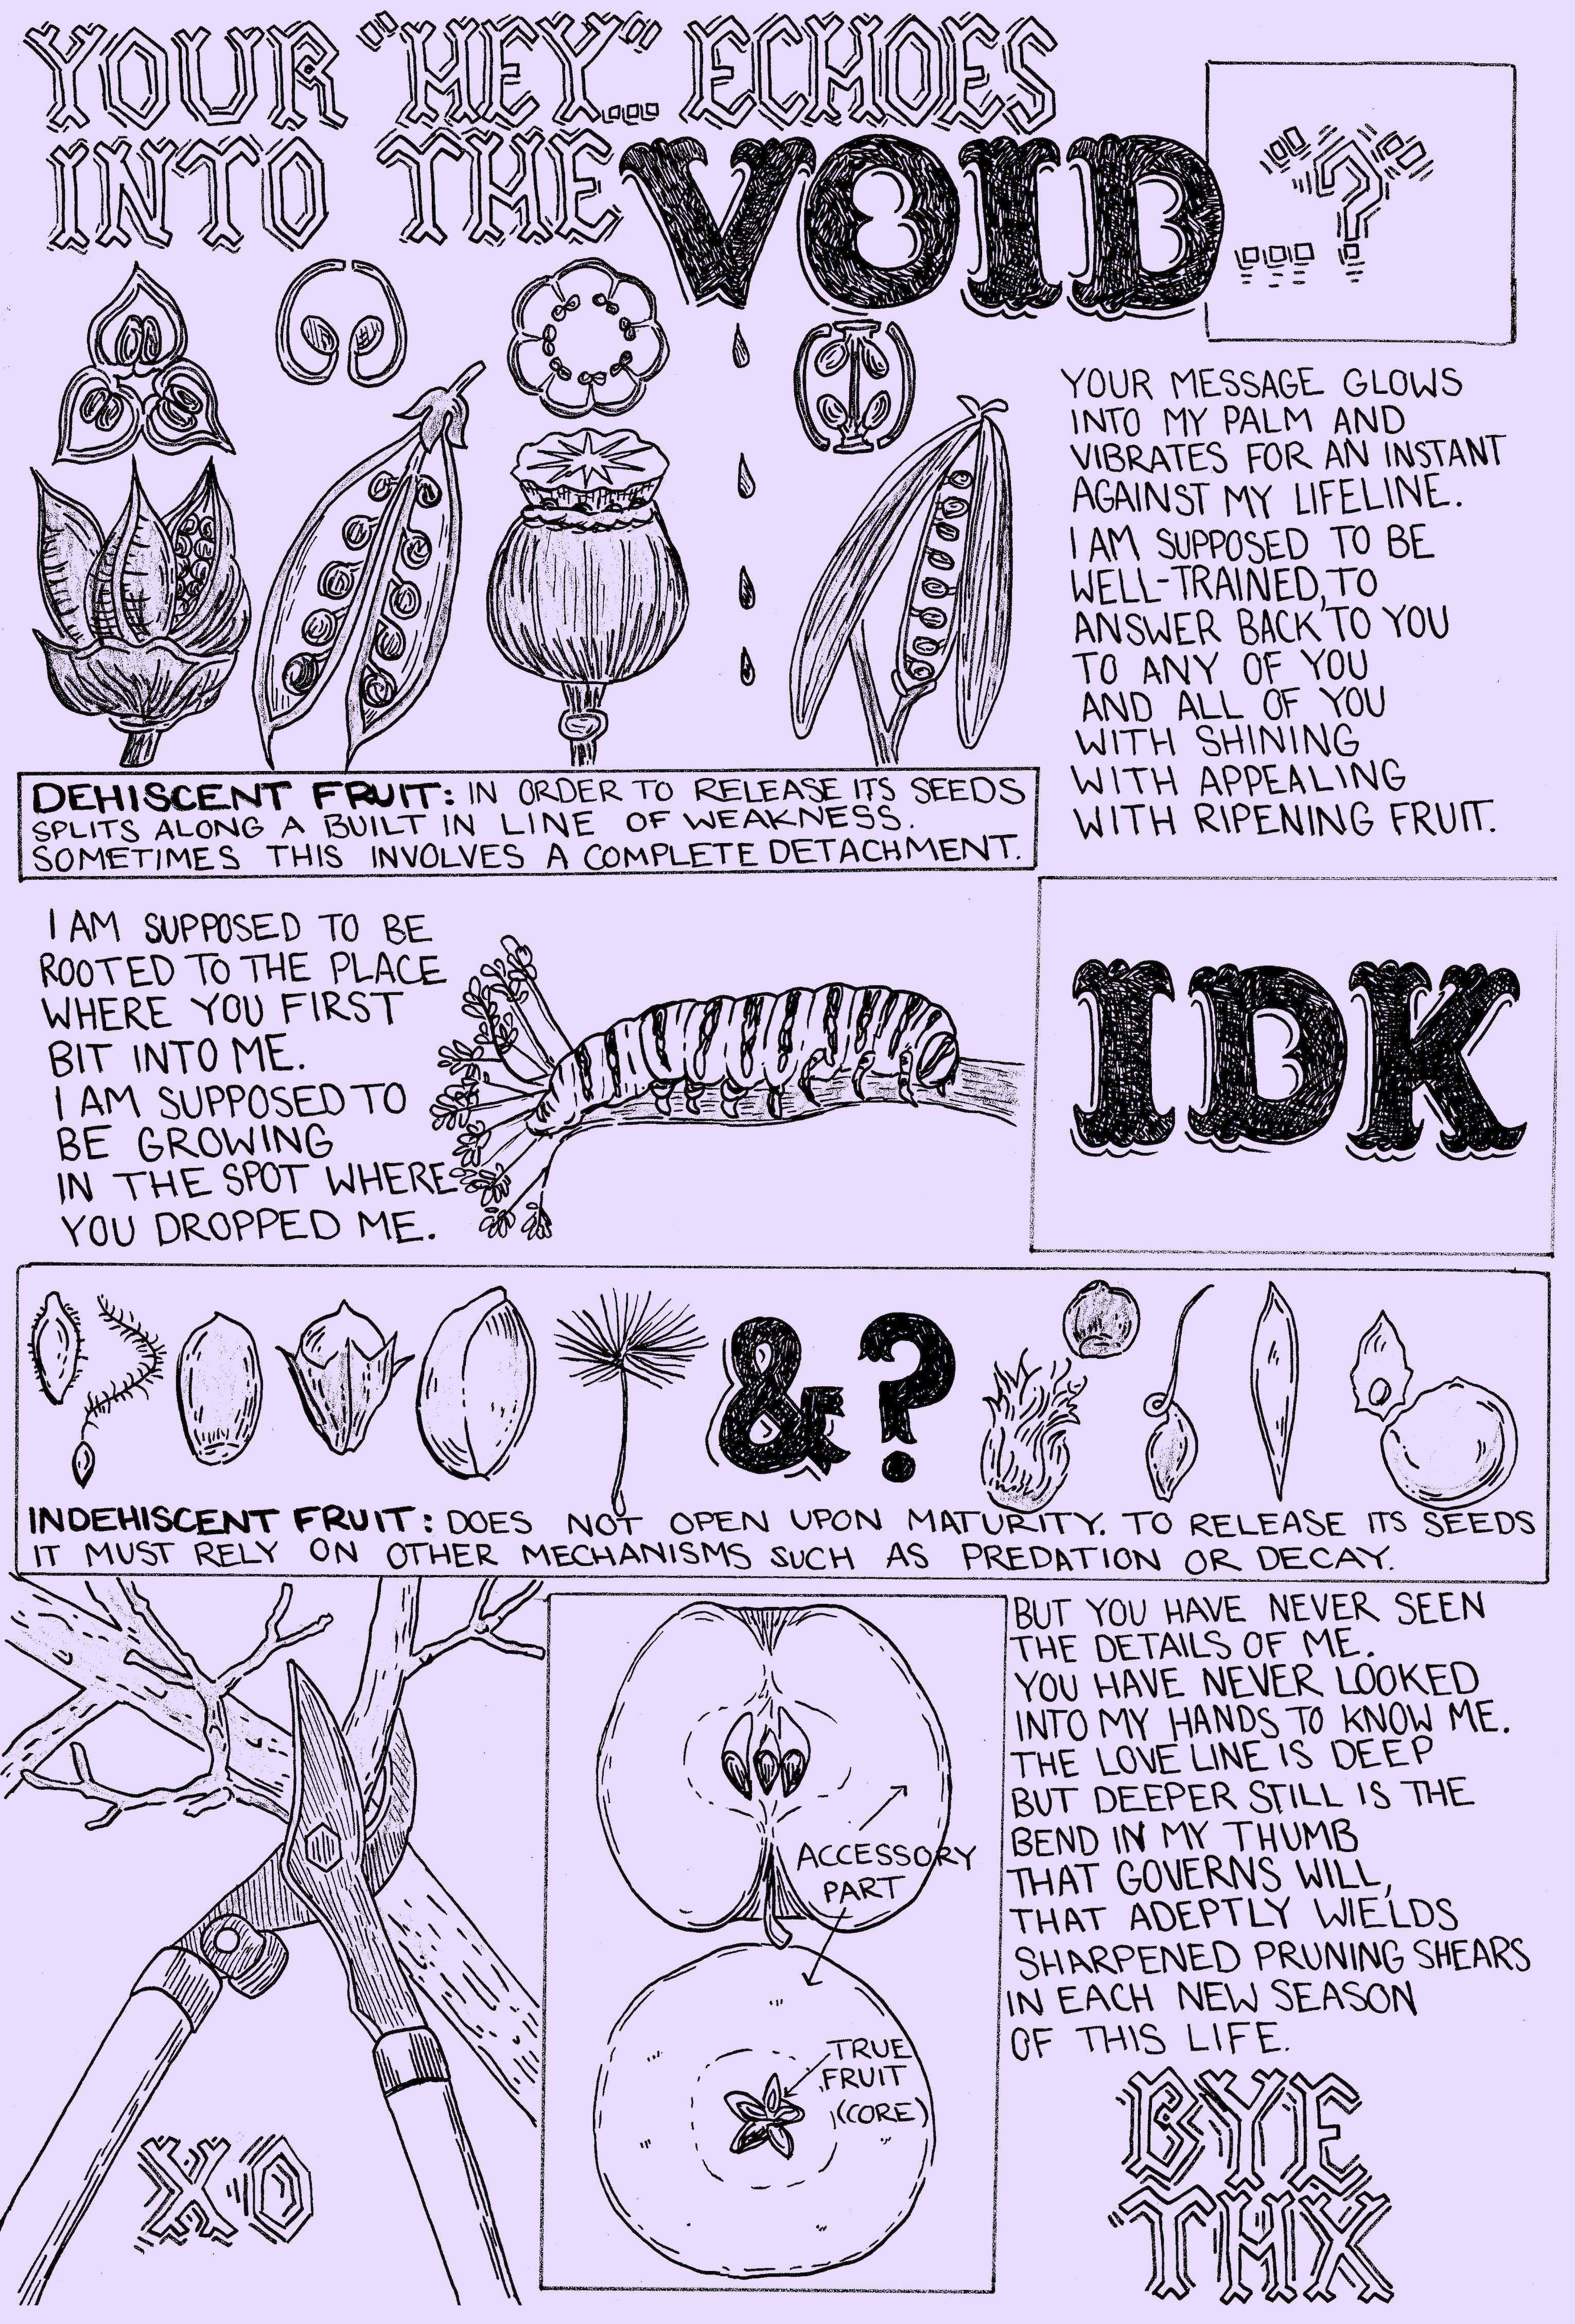 YOUR "HEY..." ECHOES
INTO THE VOID
"...?"
YOUR MESSAGE GLOWS
INTO MY PALM AND
VIBRATES FOR AN INSTANT
AGAINST MY LIFELINE.
I AM SUPPOSED TO BE
WELL-TRAINED, TO
ANSWER BACK TO YOU
TO ANY OF YOU
AND ALL OF YOU
WITH SHINING
WITH APPEALING
WITH RIPENING FRUIT.
DEHISCENT FRUIT: IN ORDER TO RELEASE ITS SEEDS
SPLITS ALONG A BUILT IN LINE OF WEAKNESS.
SOMETIMES THIS INVOLVES A COMPLETE DETACHMENT.
I AM SUPPOSED TO BE
ROOTED TO THE PLACE
WHERE YOU FIRST
BIT INTO ME.
I AM SUPPOSED TO
BE GROWING
IN THE SPOT WHERE
YOU DROPPED ME.
IDK
&?
INDEHISCENT FRUIT: DOES NOT OPEN UPON MATURITY. TO RELEASE ITS SEEDS
IT MUST RELY ON OTHER MECHANISMS SUCH AS PREDATION OR DECAY.
ACCESSORY
PART
TRUE
FRUIT
(CORE)
BUT YOU HAVE NEVER SEEN
THE DETAILS OF ME.
YOU HAVE NEVER LOOKED
INTO MY HANDS TO KNOW ME.
THE LOVE LINE IS DEEP
BUT DEEPER STILL IS THE
BEND IN MY THUMB
THAT GOVERNS WILL,
THAT ADEPTLY WIELDS
SHARPENED PRUNING SHEARS
IN EACH NEW SEASON
OF THIS LIFE.
XO
BYE
THX